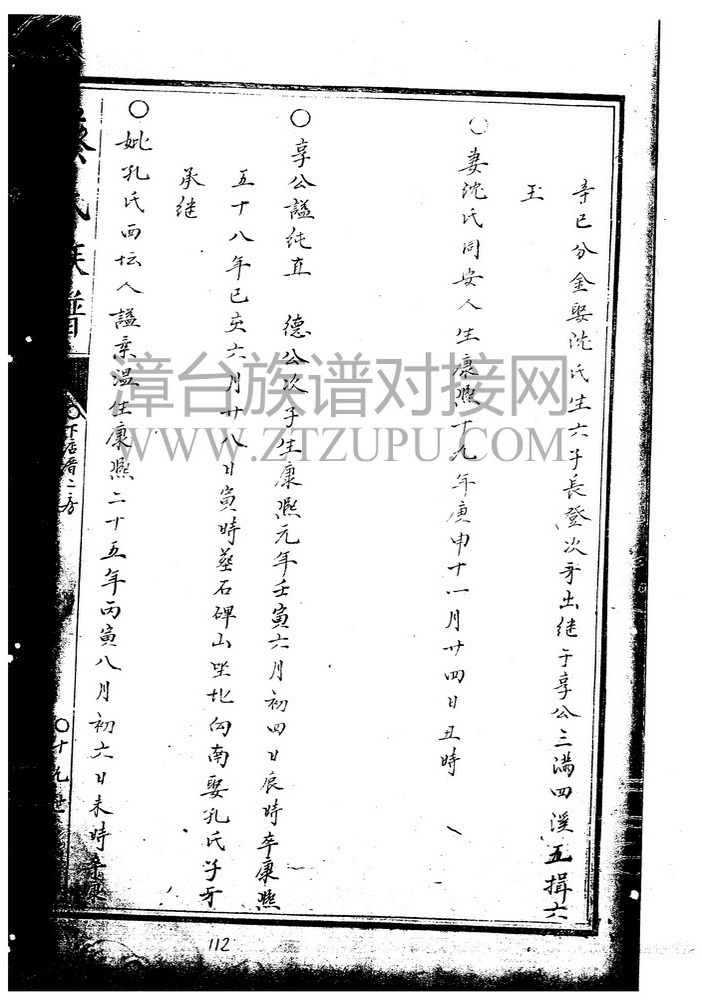 辛巳分金娶沈氏生六子長登次牙出继于享公三满四溪五揖六
玉
○妻沈氏同安人生康熙十九年庚申十一月廿四日丑時
○享公諡純直 德公次子生康熙元年壬寅六月初四日辰時卒康熙
五十八年已亥六月廿八日寅時葬石碑山坐北向南娶孔氏子牙
承继
○妣孔氏西坛人諡柔温生康熙二十五年丙寅八月初六日未時卒康
蔡氏族譜
○下店番二房
○十九世
112
漳台族谱对接网
WWW.ZTZUPU.COM